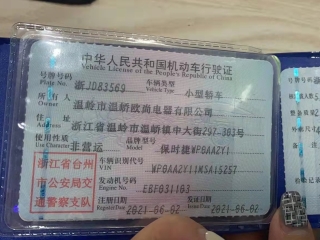 中华人民共和国机动车行驶证
Vehicle License of the People's Republic of China
号牌号码 浙JD83569 车辆类型 小型轿车
所有人 温岭市温峤欧尚电器有限公司
Owner
住址 浙江省温岭市温峤镇中大街297-303号
使用性质 非营运 品牌型号 保时捷WP0AA2Y1
Use Character
浙江省台州
市公安局交
通警察支队
车辆识别代号
VIN WP0AA2Y11MSA15257
发动机号码 EBF031103
Engine No.
注册日期 2021-06-02 发证日期 2021-06-02
Register Date Issue Date